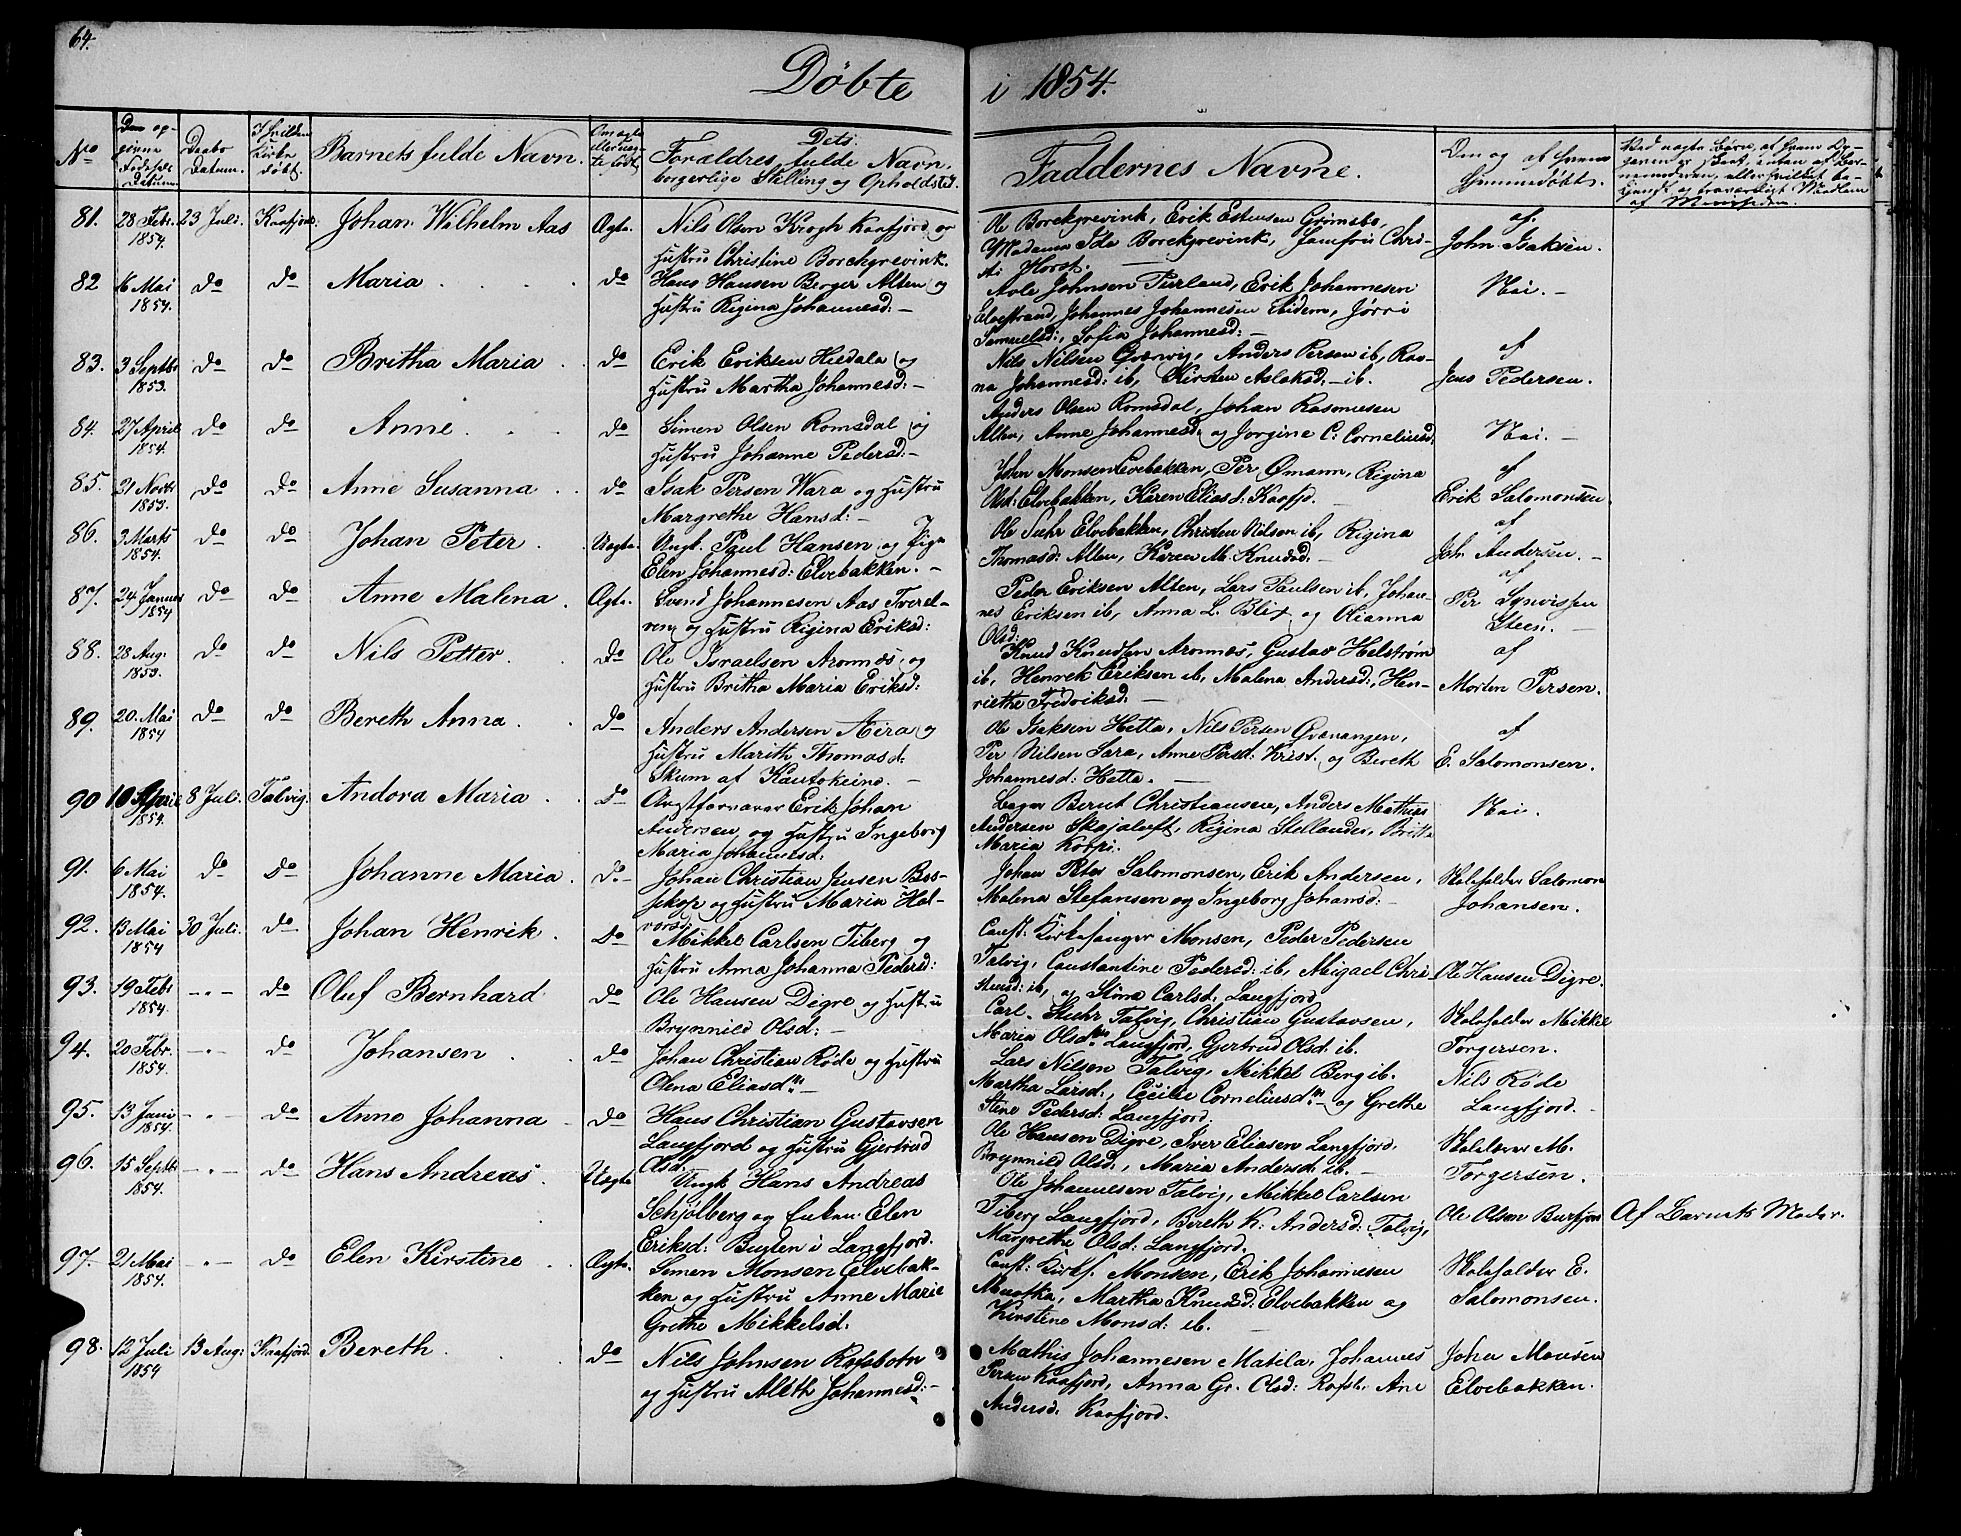 64.
Døbte i 1854.
No
Den op-
givne
Fødsels
Datum.
Daabs
Datum.
I hvilken
Kirke
døbt.
Barnets fulde Navn.
Om ægte
eller uæg-
te født.
Dets
Forældres fulde Navn,
borgerlige Stilling og Opholdsted.
Faddernes Navne.
Om og af hvem
hjemmedøbt.
81. 28 Febr. 1854. 23 Juli. Kaafjord. Johan Wilhelm Aas Ægte.
Nils Olsen Krogh Kaafjord og
Hustru Christine Borchgrevink.
Ole Borckgrevink, Erik Estensen Grimsbo,
Madame Ida Borckgrevink, Jomfru Chri-
sti Horst.
af
John Isaksen.
82 6 Mai 1854. do do Maria do
Hans Hansen Berger Alten og
Hustru Rigina Johannesd:
Johnsen Purland, Erik Johannesen
Elvestrand, Johannes Johannesen
Samuelsd:, Sofia Johannesd:
Nei.
83. 3 Septbr 1853. do do Britha Maria do
Erik Eriksen Hildala og
Hustru Martha Johannesd:
Nils Nilsen Qvænvig, Anders Persen ib, Rav-
na Johannesd: ib, Kirsten Aslaksd. ib.
af
Jens Pedersen.
84. 27 April 1854. do do Anne do
Simen Olsen Romsdal og
Hustru Johanne Pedersd:
Anders Olsen Romsdal, Johan Rasmusen
Alten, Anne Johannesd. og Jorgine C: Corneliusd.
Nei.
85. 21 Novbr 1853. do do Anne Susanna do
Isak Persen Wara og Hustru
Margrethe Hansd:
John Monsen Elvebakken, Per Ømann, Rigina
Olsd: Elvebakken, Karen Eliasd: Kaafjo.
af
Erik Salomonsen
86. 3 Marts 1854. do do Johan Peter Uægte
Ungk. Paul Hansen og Pige
Elen Johannesd: Elvebakken.
Ole Suhr Elvebakken, Christen Nilsen ib, Rigina
Thomasd: Alten, Karen M. Knudsd.
af
Joh. Andersen.
87. 24 Januar 1854 do do Anne Malena Ægte.
Svend Johannesen Aas Tverel-
ven og Hustru Rigina Eriksd:
Peder Eriksen Alten, Lars Paulsen ib, Johan-
nes Eriksen ib, Anna L. Blix og Olianna
Olsd:
af
Per
Steen.
88. 28 Aug. 1853. do do Nils Petter do
Ole Israelsen Aronnæs, og
Hustru Britha Maria Eriksd:
Knud Knudsen Aronnæs, Gustav Helstrøm
ib, Henrek Eriksen ib, Malena Andersd:, Hen-
riethe Fredriksd:
af
Morten Persen.
89. 20. Mai 1854 do do Bereth Anna do
Anders Andersen Aira og
Hustru Marith Thomasd:
Skum af Kautokeino.
Ole Isaksen Hetta, Nils Persen Qvænangen,
Per Nilsen Sara, Anne Persd: Krist. og Bereth
Johannesd: Hetta.
af
E. Salomonsen.
90 10 April 1854. 8 Juli. Talvig. Andora Maria do
Erik Johan
Andersen og Hustru Ingeborg
Maria Johannesd:
Bernt Christiansen, Anders Mathias
Andersen Skajaluft, Rigina Stellander, Britta
Maria Korpi.
Nei.
91. 6 Mai 1854. do do Johanne Maria do
Johan Christian Jensen Bos-
sekop og Hustru Maria Hal-
vorsd:
Johan Peter Salomonsen, Erik Andersen,
Malena Stefansen og Ingeborg Johansd:
Skoleholder Salomon
Johansen.
92. 13 Mai 1854 30 Juli. do Johan Henrik do
Mikkel Carlsen Tiberg og
Hustru Anna Johanna Pedersd:
Const: Kirkesanger Monsen, Peder Pedersen
Talvig, Constantine Pedersd: ib, Migael Chri-
stensd: ib, og Stina Carlsd: Langfjord
93. 19 Febr 1854. do Oluf Bernhard do
Ole Hansen Digre og Hustru
Brynnild Olsd:
Carl Stuhr Talvig, Christian Gustavsen,
Maria Olsdtr Langfjord, Gjertrud Olsd: ib.
Ole Hansen Digre.
Skoleholder Mikkel
Torgersen.
94. 20 Febr. 1854. do Johansen do
Johan Christian Røde og Hustru
Olena Eliasdtr
Lars Nilsen Talvig, Mikkel Berg ib.
Martha Larsd:, Cecilie Corneliusdtr og Grethe
Stine Pedersd: Langfjord.
Nils Røde
Langfjord.
95. 13 Juni 1854. do Anne Johanna do
Hans Christian Gustavsen
Langfjord og Hustru Gjertrud
Olsd.
Ole Hansen Digre, Iver Eliasen Langfjord,
Brynnild Olsd:, Maria Andersd: ib.
Skolelærer M.
Torgersen.
96. 15 Septbr 1854. do Hans Andreas Uægte
Ungk Hans Andreas
Schjølberg og Enken Elen
Eriksd: Bugten i Langfjord.
Ole Johannesen Talvig, Mikkel Carlsen
Tiberg Langfjord, Bereth K. Andersd: Talvig,
Margrethe Olsd: Langfjord.
Ole Olsen Burfjor
Af Barnets Moder.
97. 21 Mai 1854. do Elen Kirstine Ægte.
Simen Monsen Elvebak-
ken og Hustru Anne Marie
Grethe Mikkelsd:
Const: Kirks. Monsen, Erik Johannesen
Martha Knudsd: Elvebakken og
Kirstine Monsd: ib.
Skoleholder E.
Salomonsen.
98. 12 Juli 1854 13 Aug: Kaafjord Bereth do
Nils Johnsen Rafsbotn
og Hustru Aleth Johannesd:
Mathis Johannesen Matila, Johannes
Persen Kaafjord, Anna Gr. Olsd: Rafsb, Ane
Andersd: Kaafjord.
John Monsen
Elvebakken.